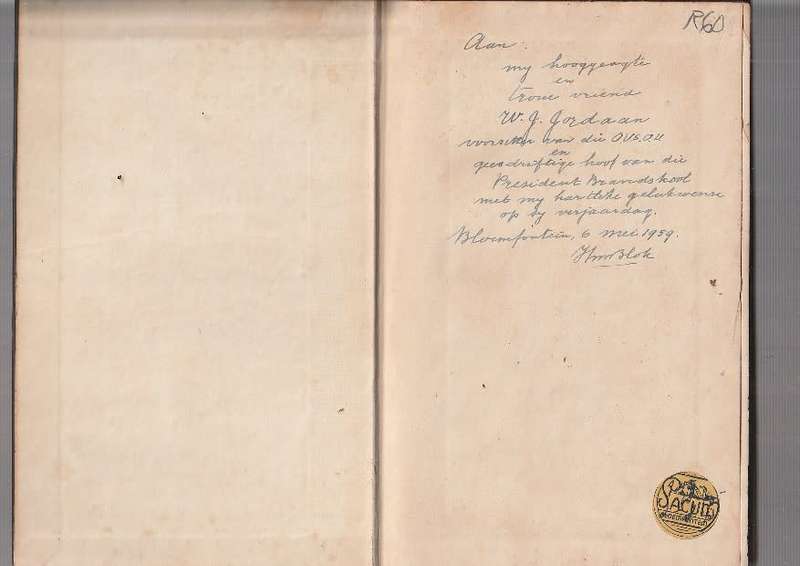 R60
Aan:
my hooggeagte
en
troue vriend
W. J. Jordaan
voorsitter van die OVS.OU
en
geesdriftige hoof van die
President Brandskool
met my hartlike gelukwense
op sy verjaardag.
Bloemfontein, 6 Mei 1959.
Blok
SACUM
BLOEMFONTEIN